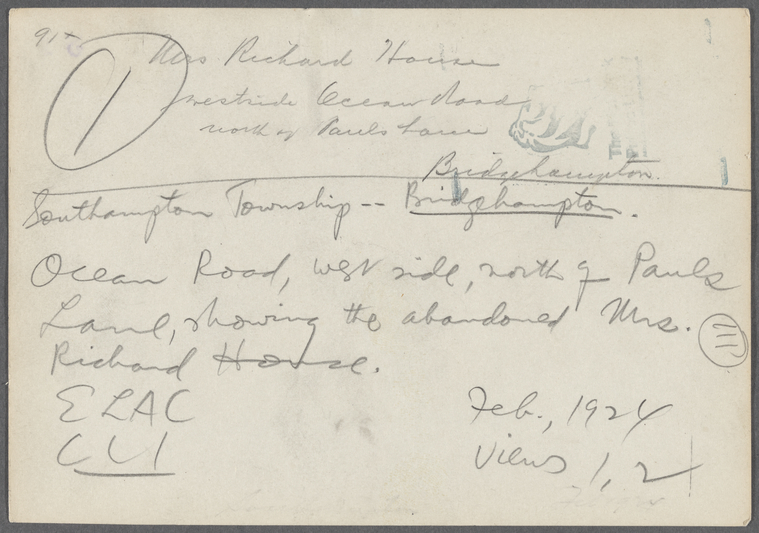 915
1
Mrs Richard House
westside Ocean Road
north of Pauls Lane
Bridgehampton.
Southampton Township -- Bridgehampton.
Ocean Road, west side, north of Pauls
Lane, showing the abandoned Mrs.
Richard House.
III
E L A C
Feb., 1924
C C I
Views 1, 2